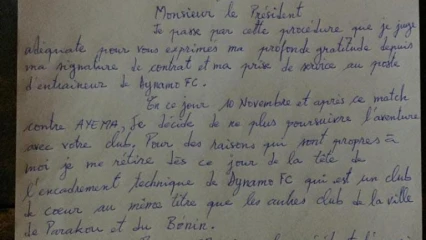 Monsieur le Président
Je passe par cette procédure que je juge
adéquate pour vous exprimes ma profonde gratitude depuis
ma signature de contrat et ma prise de service au poste
d'entraineur de Dynamo FC.
En ce jour 10 Novembre et après ce match
contre AYEMA, Je décide de ne plus poursuivre l'aventure
avec votre club. Pour des raisons qui sont propres à
moi je me rétire dès ce jour de la tête de
l'encadrement technique de Dynamo FC qui est un club
de coeur au même titre que les autres club de la ville
de Parakou et du Bénin.